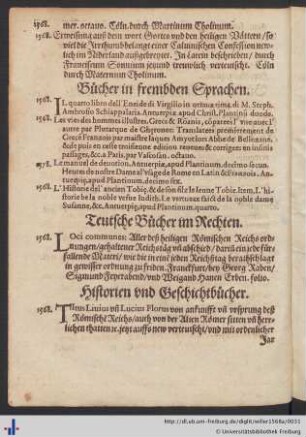 1568. mer. octauo. Cöln durch Martinum Cholinum.
1568. Erweisung auß dem wort Gottes vnd den heiligen Vättern / so
viel die Jrrthumb belanget einer Caluinischen Confession new-
lich im Niderland außgebreytet. Jn Latein beschrieben / durch
Franciscum Sonnium jetzund trewlich verteutscht. Cöln
durch Maternum Cholinum.
Bücher in frembden Sprachen.
1568. IL quarto libro dell'Eneide di Virgilio in ottaua rima, di M. Steph.
Ambrosio Schiappalaria. Antuerpiæ apud Christ. Plantinũ duode.
1568. Las vies des hommes illustres, Grecs & Romains, cõparees l'vne auec l'au-
autre par Plutarque de Cheronee: Translatees premierement de
Grec en François par maistre Iaques Amyot lors Abbé de Bellozane,
& de puis en ceste troisieme edition reueues & corrigees en infinis
passages, &c. à Paris, par Vascosan. octauo.
1568. Le manuel de deuotion. Antuerpiæ, apud Plantinum. decimo sexto.
Heures de nostre Dame à l'vsage de Rome en Latin & en François. An-
tuerpiæ, apud Plantinum. decimo sex.
1568. L'Histoire de l'ancien Tobie, & de son filz le Ieune Tobie. Item, L'hi-
storie de la noble vefue Iudith. Le vertueux faict de la noble dame
Susanne, &c. Antuerpiæ, apud Plantinum. quarto.
Teutsche Bücher im Rechten.
1568. LOci communes: Aller deß heiligen Römischen Reichs ord-
nungen / gehaltener Reichßtäg vñ abschied / darzu ein jede für-
fallende Materi / wie die in eine jeden Reichstag berathschlagt
in gewisser ordnung zu finden. Franckfurt / bey Georg Raben /
Sigmund Feyrabend / vnd Weigand Hanen Erben. folio.
Historien vnd Geschichtbücher.
1568. TJtus Liuius vñ Lucius Florus von ankunfft vñ vrsprung deß
Römischẽ Reichs / auch von der Alten Römer sitten vñ herr-
lichen thatten ꝛc. jetzt auffs new verteutscht / vnd mit ordenlicher
Jar
http://dl.ub.uni-freiburg.de/diglit/willer1568a/0031
© Universitätsbibliothek Freiburg